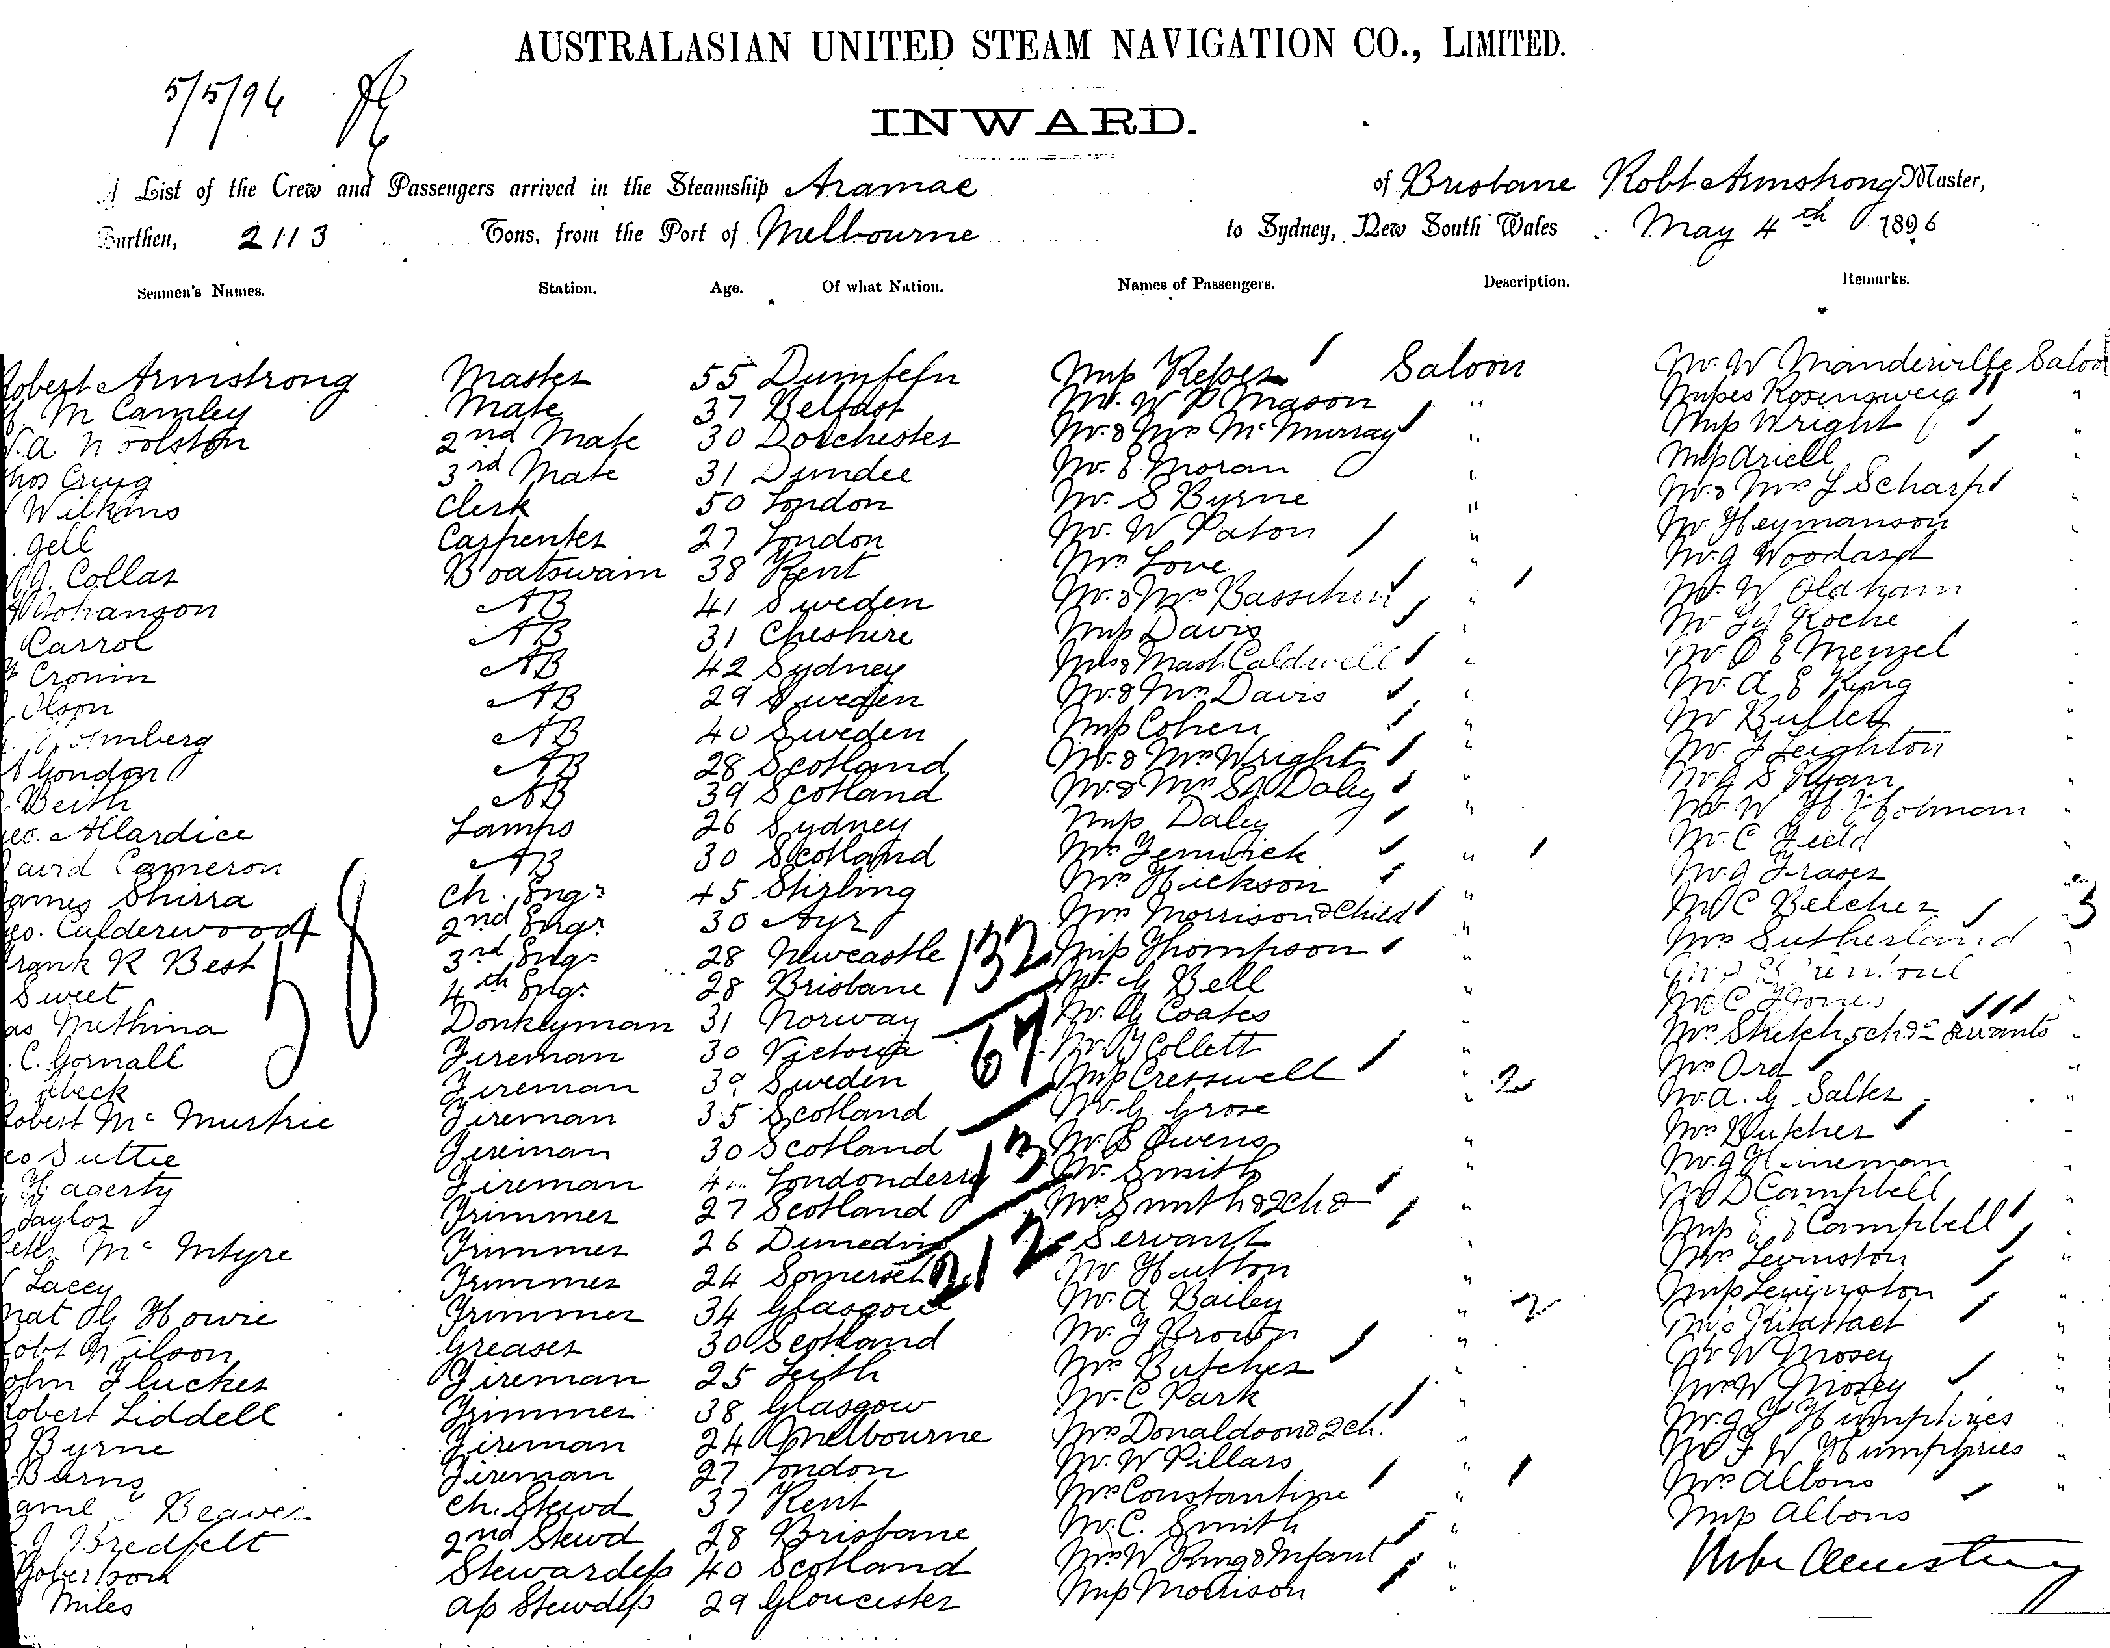 AUSTRALASIAN UNITED STEAM NAVIGATION CO., LIMITED.
5/5/96
INWARD.
A List of the Crew and Passengers arrived in the Steamship Aramac of Brisbane Robt Armstrong Master,
Burthen, 2113 Tons, from the Port of Melbourne to Sydney, New South Wales May 4th 1896
Seamen's Names. Station. Age. Of what Nation. Names of Passengers. Description. Remarks.
Robert Armstrong Master 55 Miss Saloon Mr. W Manderville Saloon
M Camley Mate 37 Belfast Mr. W P Mason " Misses Rosengweig "
Woolston 2nd Mate 30 Dorchester Mr. & Mrs McMurray " Miss Wright "
Craig 3rd Mate 31 Dundee Mr. E Moran " Miss Ariell "
Wilkins Clerk 50 London Mr. S Byrne " Mr & Mrs L Scharp "
Gell Carpenter 27 London Mr. W Paton " Mr Heymanson "
Collar Boatswain 38 Kent Mrs Love " Mr J Woodard "
Johanson AB 41 Sweden Mr. & Mrs " Mr. W Oldham "
Carrol AB 31 Cheshire Miss Davis " Mr Roche "
Cronin AB 42 Sydney Mrs & Mast Caldwell " Mr O E Menzel "
Olson AB 29 Sweden Mr. & Mrs Davis " Mr. A E King "
AB 40 Sweden Miss Cohen " Mr Butler "
London AB 28 Scotland Mr. & Mrs Wright " Mr. J Leighton "
Beith AB 39 Scotland Mr. & Mrs Daley " Mr S Ryan "
Geo. Allardice Lamps 26 Sydney Miss Daley " Mr. W H Holman "
David Cameron AB 30 Scotland Mrs Fenwick " Mr. C Field "
James Shirra Ch. Engr 45 Stirling Mrs Hickson " Mr J Fraser "
Geo. Calderwood 2nd Engr 30 Ayr Mrs Morrison & Child " Mr C Belcher 3
Frank R Best 58 3rd Engr 28 Newcastle 132 Miss Thompson " Mrs Sutherland
Sweet 4th Engr 28 Brisbane Mr. G Bell "
Donkeyman 31 Norway Mr. G Coates " Mr. C Jones "
C. Gornall Fireman 30 Victoria 67 Mr Collett " Mrs & servants "
Fireman 39 Sweden Miss Cresswell " 2 Mrs Ord "
Robert Mc Fireman 35 Scotland Mr. G Grose " Mr A. G Salter "
Suttie Fireman 30 Scotland 13 Mr. S Owens " Mrs Butcher "
Hagerty Fireman Londonderry Mr. Smith " Mr J Heineman "
Taylor Trimmer 27 Scotland Mrs Smith & 2 ch & " Mr D Campbell "
Peter Mc Intyre Trimmer 26 Dunedin 212 Servant " Miss E & Campbell "
Lacey Trimmer 24 Somerset Mr Hutton " Mrs Levinston "
Howie Trimmer 34 Glasgow Mr. A Bailey " 2 Miss Levingston "
Robt Wilson Greaser 30 Scotland Mr. J Brown "
John Flucker Fireman 25 Leith Mrs Butcher " Mr W Mosey "
Robert Liddell Trimmer 38 Glasgow Mr. C Park " Mrs W Mosey "
Byrne Fireman 24 Melbourne Mrs Donaldson & 2 ch. " Mr. J Humphries "
Burns Fireman 27 London Mr. W Pillars " Mr F W Humphries "
Beaver Ch. Stewd 37 Kent Mrs Constantine " Mrs Albons "
Bredfelt 2nd Stewd 28 Brisbane Mr. C. Smith " Miss Albons
Robertson Stewardess 40 Scotland Mrs W King & Infant "
Miles as Stewdess 29 Gloucester Miss Morrison "